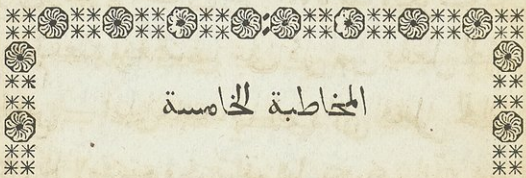 المخاطبة الخامسة